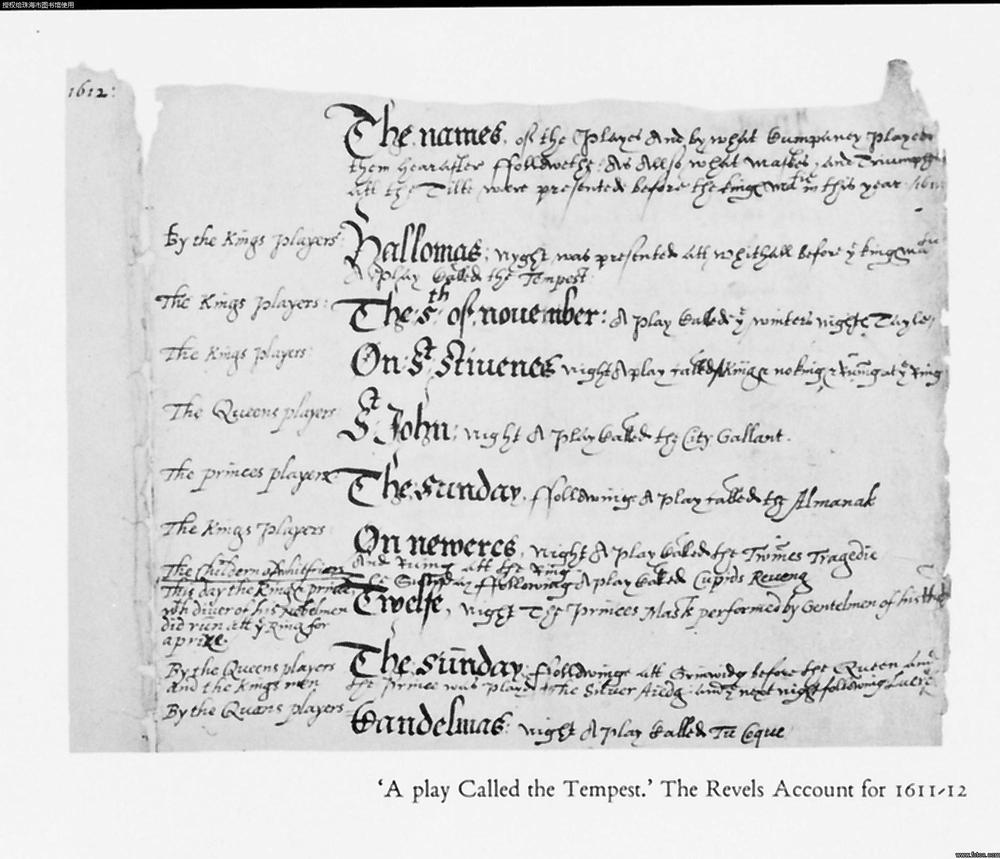 授权给珠海市图书馆使用
1612:
The names of the Playes And by what Cumpaney Played
them hearafter ffollowethe: As Allso what Maskes, and Triumphes
att the Tilte were presented before the kinges Ma^tie in this year 1612
By the Kings Players: Hallomas: nyght was presented att Whithall before y^e kinges Ma^tie
A play Called the Tempest:
The Kings Players: The 5^th of nouember: A play Called y^e winters nights Tayle,
The Kings Players: On S^t Stiuenes night A play called A King & no King & Runing at y^e Ring
The Queens players S^t John: night A play Called the City Gallant.
The princes players The Sunday ffollowinge A play called the Almanak
The Kings Players On neweres night A play Called the Twines Tragedie
And Runing att the Ring
The Childern of Whitfriars The Sunday ffollowing A play Called Cupids Reueng
This day the King & prince
w^th diuer of his Nobelmen Twelfe, night The Princes Mask performed by Gentelmen of his
did run att y^e Ring for
a prize.
By the Queens players The Sunday ffollowinge att Grinwidg before the Queen and
and the Kings men the Prince was playd the Siluer Aiedg: and y^e next night following Lucre
By the Quens players Candelmas: night A play Called Tu Coque
‘A play Called the Tempest.’ The Revels Account for 1611-12
www.fotoe.com